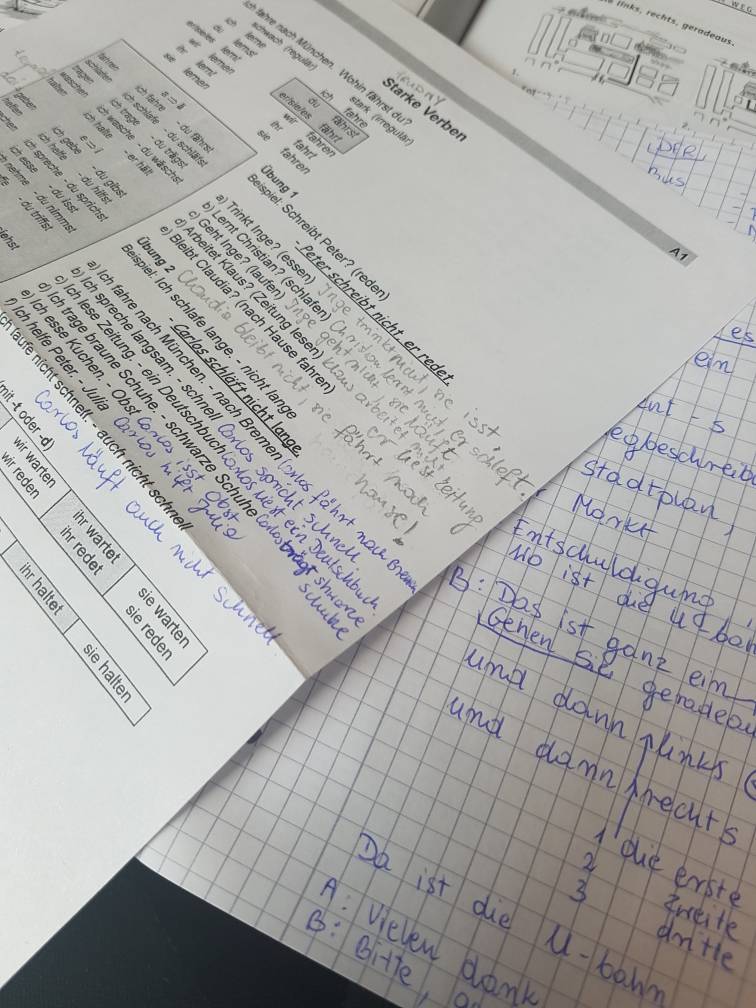 links, rechts, geradeaus.
Ich fahre nach München. Wohin fährst du?
Starke Verben
schwach (regulär)
ich lerne
du lernst
er/sie/es lernt
wir lernen
ihr lernt
sie lernen
stark (irregulär)
ich fahre
du fährst
er/sie/es fährt
wir fahren
ihr fahrt
sie fahren
a → ä
fahren ich fahre - du fährst
schlafen ich schlafe - du schläfst
tragen ich trage - du trägst
waschen ich wasche - du wäschst
halten ich halte er hält
e → i
geben ich gebe - du gibst
helfen ich helfe - du hilfst
ich spreche - du sprichst
ich esse - du isst
ich nehme - du nimmst
- du triffst
A1
Übung 1
Beispiel: Schreibt Peter? (reden)
- Peter schreibt nicht, er redet.
a) Trinkt Inge? (essen) Inge trinkt nicht, sie isst
b) Lernt Christian? (schlafen) Christian lernt nicht er schläft.
c) Geht Inge? (laufen) Inge geht nicht, sie läuft
d) Arbeitet Klaus? (Zeitung lesen) Klaus arbeitet nicht
er liest Zeitung
e) Bleibt Claudia? (nach Hause fahren)
Claudia bleibt nicht, sie fährt nach
hause!
Übung 2
Beispiel: Ich schlafe lange. - nicht lange
- Carlos schläft nicht lange.
a) Ich fahre nach München. - nach Bremen Carlos fährt nach Bremen
b) Ich spreche langsam. - schnell Carlos spricht schnell.
c) Ich lese Zeitung. - ein Deutschbuch Carlos liest ein Deutschbuch
d) Ich trage braune Schuhe. - schwarze Schuhe Carlos trägt shwarze
schuhe
e) Ich esse Kuchen. - Obst Carlos isst Obst
f) Ich helfe Peter. - Julia Carlos hilft Julia
ich laufe nicht schnell. - auch nicht schnell
Carlos läuft auch nicht schnell
(mit -t oder -d)
wir warten ihr wartet sie warten
wir reden ihr redet sie reden
ihr haltet sie halten
Der
Bus
es
ein
Stadtplan,
Markt
Entschuldigung
Wo ist die U-bah
B: Das ist ganz ein
Gehen Sie geradeau
und dann links
und dann rechts
1 die erste
2 zweite
3 dritte
Da ist die U-bahn
A: Vielen dank
B: Bitte,